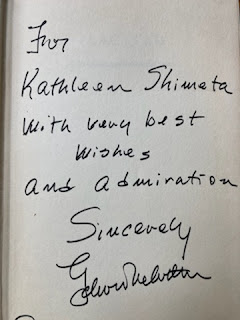 For
Kathleen Shimata
With very best
Wishes
and admiration
Sincerely